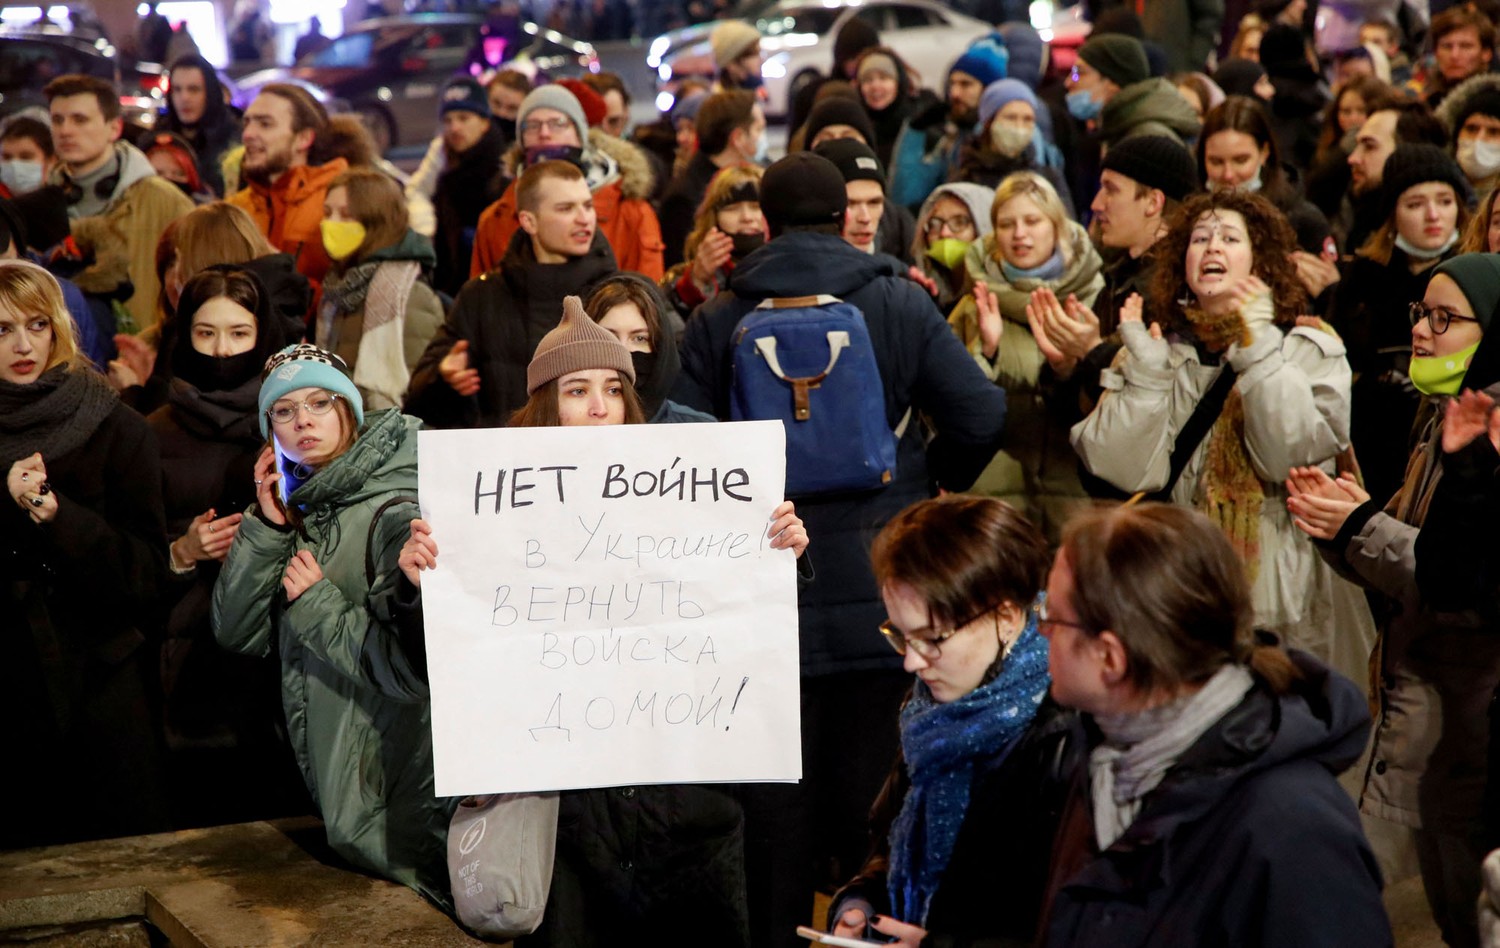 НЕТ ВОЙНЕ
в Украине!
ВЕРНУТЬ
ВОЙСКА
ДОМОЙ!
NOT OF
THIS
WORLD